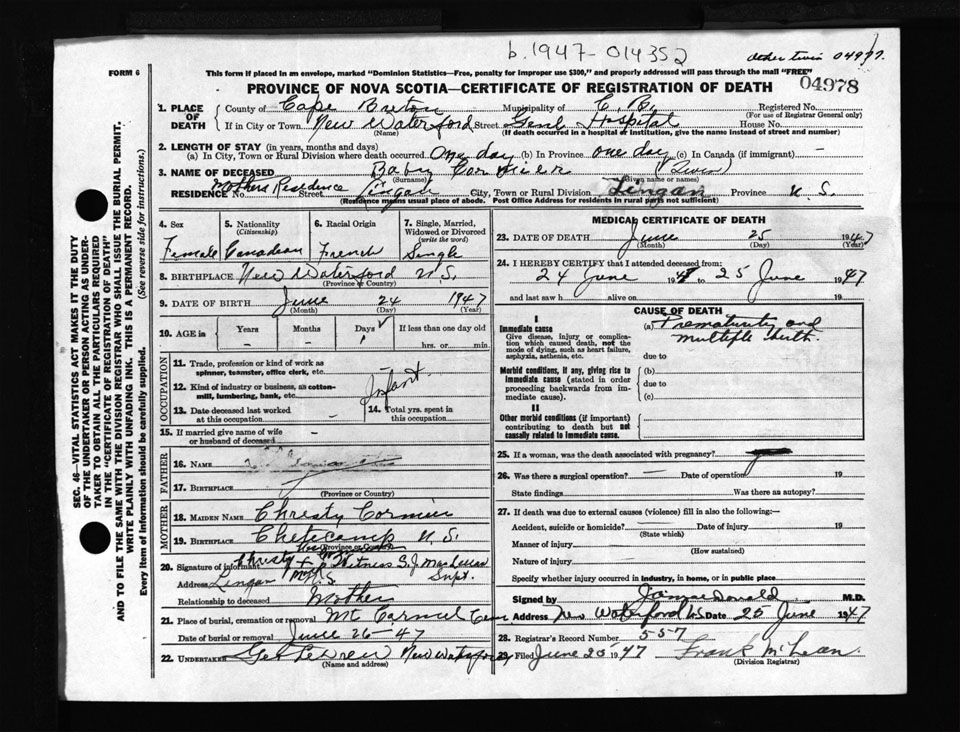 b. 1947-014352
other twin 04977.
FORM 6
This form if placed in an envelope, marked "Dominion Statistics—Free, penalty for improper use $300," and properly addressed will pass through the mail "FREE"
04978
PROVINCE OF NOVA SCOTIA—CERTIFICATE OF REGISTRATION OF DEATH
1. PLACE OF DEATH
County of Cape Breton Municipality of C. B. Registered No.
(For use of Registrar General only)
If in City or Town New Waterford Street Genl. Hospital House No.
(Name) (If death occurred in a hospital or institution, give the name instead of street and number)
2. LENGTH OF STAY (in years, months and days)
(a) In City, Town or Rural Division where death occurred One day (b) In Province one day (c) In Canada (if immigrant) —
3. NAME OF DECEASED Baby Cormier (Twin)
(Surname) (Given name or names)
RESIDENCE No. Mothers Residence Street Lingan City, Town or Rural Division Lingan Province N. S.
(Residence means usual place of abode. Post Office Address for residents in rural parts not sufficient)
4. Sex
Female
5. Nationality (Citizenship)
Canadian
6. Racial Origin
French
7. Single, Married, Widowed or Divorced (write the word)
Single
8. BIRTHPLACE New Waterford N.S.
(Province or Country)
9. DATE OF BIRTH June 24 1947
(Month) (Day) (Year)
10. AGE in Years Months Days If less than one day old
— — 1 hrs. or min.
OCCUPATION
11. Trade, profession or kind of work as spinner, teamster, office clerk, etc. —
12. Kind of industry or business, as cotton-mill, lumbering, bank, etc. Infant
13. Date deceased last worked at this occupation —
14. Total yrs. spent in this occupation
15. If married give name of wife or husband of deceased
FATHER
16. NAME
17. BIRTHPLACE
(Province or Country)
MOTHER
18. MAIDEN NAME Christy Cormier
19. BIRTHPLACE Cheticamp N. S.
(Province or Country)
20. Signature of informant Christy Witness S. J. MacLellan Supt.
Address Lingan N.S.
Relationship to deceased Mother
21. Place of burial, cremation or removal Mt Carmel Cem
Date of burial or removal June 26-47
22. UNDERTAKER New Waterford
(Name and address)
MEDICAL CERTIFICATE OF DEATH
23. DATE OF DEATH June 25 1947
(Month) (Day) (Year)
24. I HEREBY CERTIFY that I attended deceased from:
24 June 1947 to 25 June 1947
and last saw h alive on 19
CAUSE OF DEATH
I
Immediate cause
Give disease, injury or complication which caused death, not the mode of dying, such as heart failure, asphyxia, asthenia, etc.
(a) Prematurity and multiple birth.
due to
Morbid conditions, if any, giving rise to immediate cause (stated in order proceeding backwards from immediate cause).
(b)
due to
(c)
II
Other morbid conditions (if important) contributing to death but not causally related to immediate cause.
25. If a woman, was the death associated with pregnancy?
26. Was there a surgical operation? — Date of operation 19
State findings Was there an autopsy?
27. If death was due to external causes (violence) fill in also the following:—
Accident, suicide or homicide? Date of injury 19
(State which)
Manner of injury
(How sustained)
Nature of injury
Specify whether injury occurred in industry, in home, or in public place
Signed by M.D.
Address New Waterford NS Date 25 June 1947
28. Registrar's Record Number 557
29. Filed June 25 1947 Frank McLean.
(Division Registrar)
SEC. 46—VITAL STATISTICS ACT MAKES IT THE DUTY
OF THE UNDERTAKER OR PERSON ACTING AS UNDER-
TAKER TO OBTAIN ALL THE PARTICULARS REQUIRED
IN THE "CERTIFICATE OF REGISTRATION OF DEATH"
AND TO FILE THE SAME WITH THE DIVISION REGISTRAR WHO SHALL ISSUE THE BURIAL PERMIT.
WRITE PLAINLY WITH UNFADING INK. THIS IS A PERMANENT RECORD.
Every item of information should be carefully supplied. (See reverse side for instructions.)